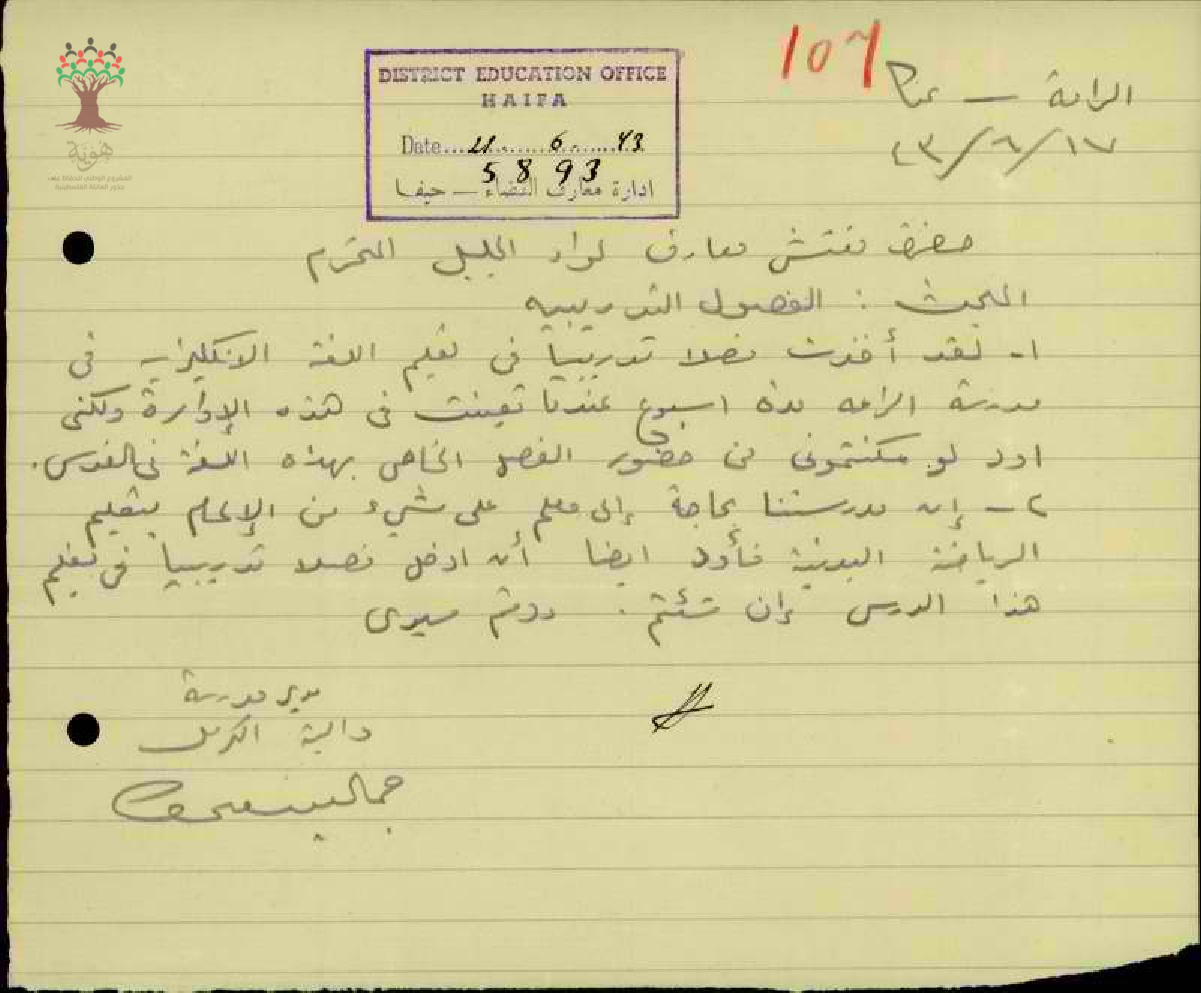 107
الرامة — عكا
٤٣/٦/١٧
DISTRICT EDUCATION OFFICE
HAIFA
Date... 21 ... 6 ... 43
5893
ادارة معارف القضاء — حيفا
هوية
المشروع الوطني للحفاظ على
جذور العائلة الفلسطينية
حضرة مفتش معارف لواء الجليل المحترم
المبحث : الفصول التدريبيه
١- لقد أخذت فصلا تدريبيا في تعليم اللغة الانكليزية في
مدرسة الرامه مدة اسبوع عندما تعينت في هذه الإدارة ولكني
اود لو مكنتموني من حضور الفصل الخاص بهذه اللغة في القدس.
٢- إن مدرستنا بحاجة إلى معلم على شيء من الإلمام بتعليم
الرياضة البدنية فأود ايضا أن ادخل فصلا تدريبيا في تعليم
هذا الدرس إن شئتم . ودمتم سيدي
مدير مدرسة
دالية الكرمل
جمال